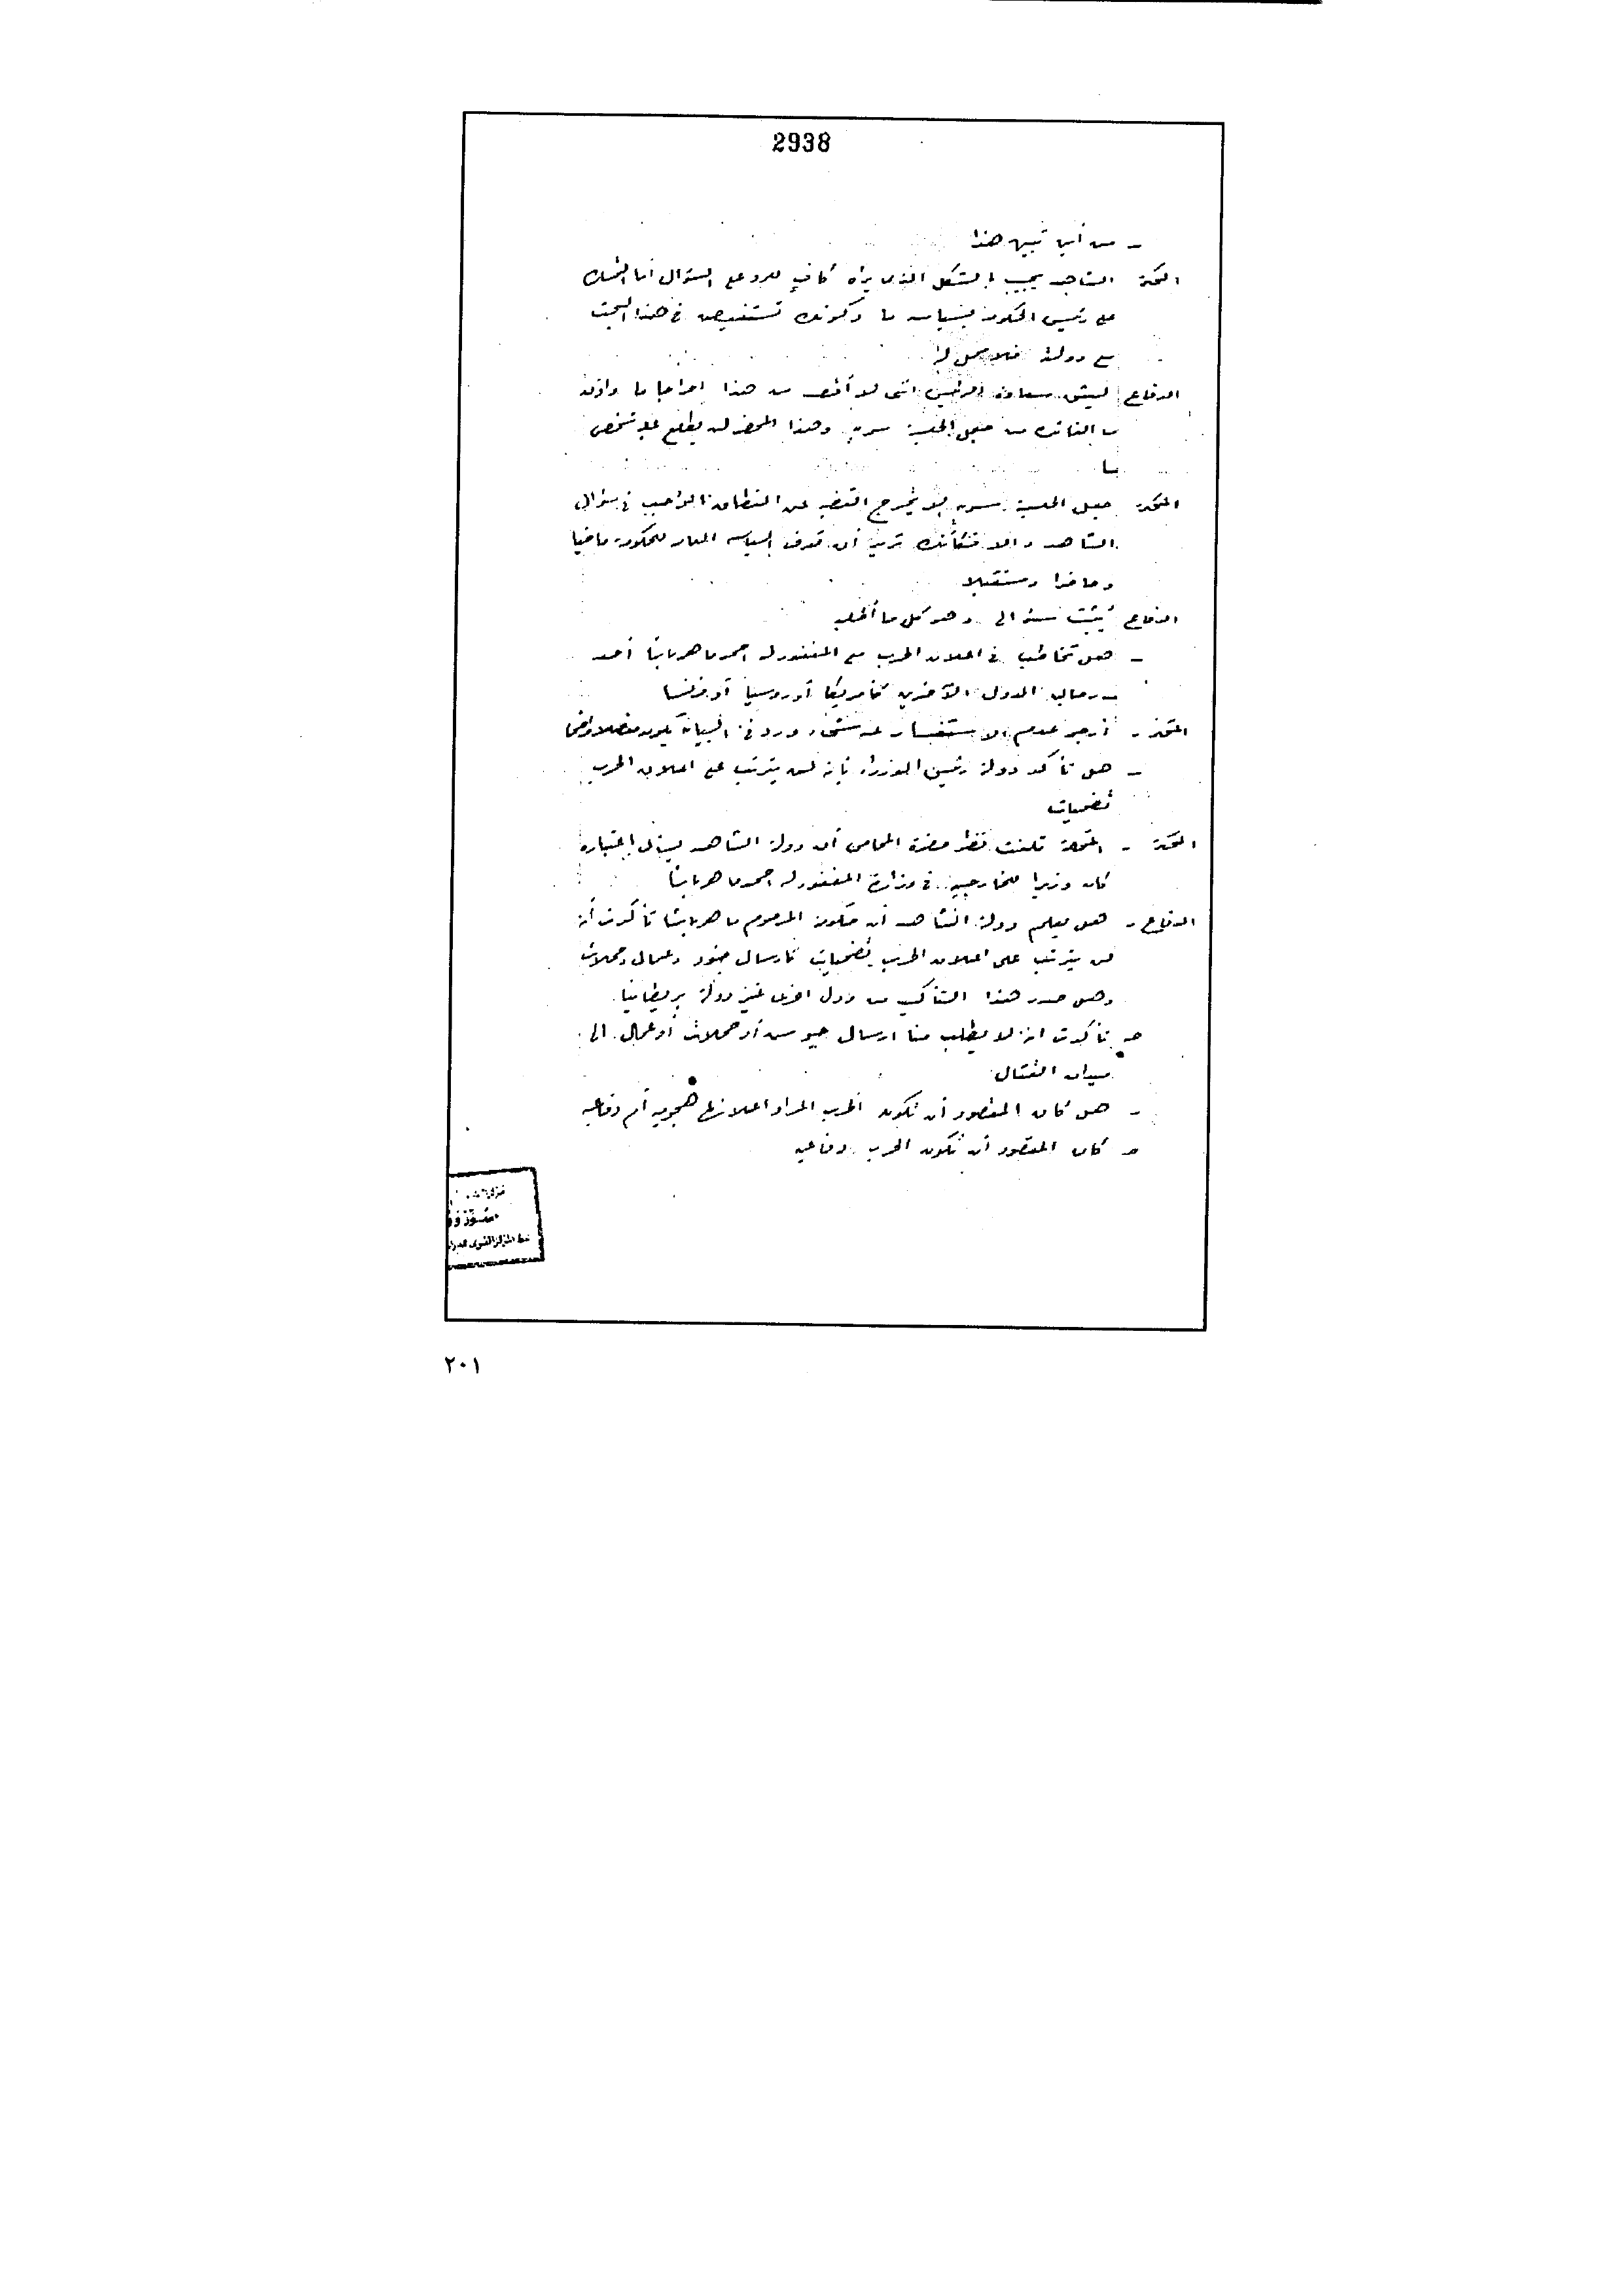 2938
ـ من أين تبين هذا
المحكمة الشاهد يجيب بالشكل الذى يراه كافى للرد على السؤال أما التمسك
على رئيس الحكومة بسياسه ما وكونك تستفيض فى هذا البحث
مع دولة فلا محل له
الدفاع ليثق سعادة الرئيس اننى لا أقصد من هذا احراجا ما واذن
ما الفائدة من جعل الجلسة سريه وهذا المحضر لن يطلع عليه شخص
ما
المحكمة جعل الجلسة سريه لا يخرج القضيه عن النطاق الواجب فى سؤال
الشاهد والا فكأنك تريد أن تعرف السياسه العامه للحكومه ماضيا
وحاضرا ومستقبلا
الدفاع يثبت سؤالى وهو كل ما أطلبه
ـ هل تخاطب فى اعلان الحرب مع المغفور له احمد ماهر باشا أحد
من رجال الدول الآخرين كأمريكا أو روسيا أو فرنسا
ـ أرجو عدم الاستفسار عن شىء ورد فى البيان يكون مفصلا واضحا
ـ هل تأكد دولة رئيس الوزراء بأنه لن يترتب على اعلان الحرب
تضحيات
المحكمة ـ المحكمة تلفت نظر حضرة المحامى أن دولة الشاهد يسأل باعتباره
كان وزيرا للخارجيه فى وزارة المغفور له احمد ماهر باشا
الدفاع ـ هل يعلم دولة الشاهد أن حكومة المرحوم ماهر باشا تأكدت أنه
لن يترتب على اعلان الحرب تضحيات كارسال جنود وعمال وحملات
وهل صدر هذا التأكيد من دول اخرى غير دولة بريطانيا
حـ تأكدت انه لا يطلب منا ارسال جيوش أو حملات أو عمال الى
ميدان القتال
ـ هل كان المقصود أن تكون الحرب المراد اعلانها هجوميه أم دفاعيه
حـ كان المقصود أن تكون الحرب دفاعيه
٢٠١